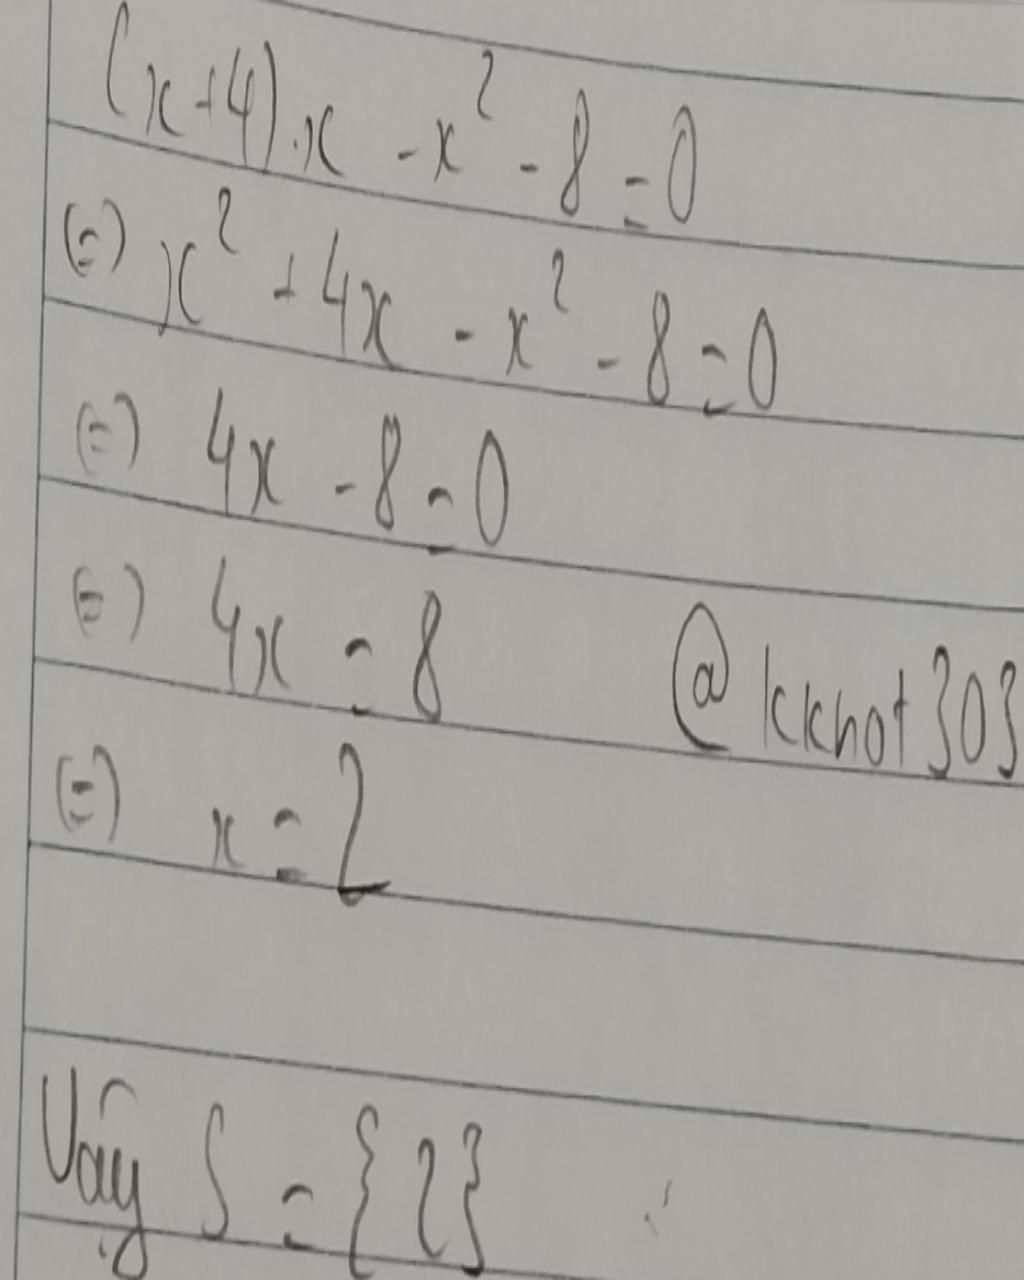 (x+4).x - x² - 8 = 0
(=) x² + 4x - x² - 8 = 0
(=) 4x - 8 = 0
(=) 4x = 8
@kkhot303
(=) x = 2
Vậy S = {2}